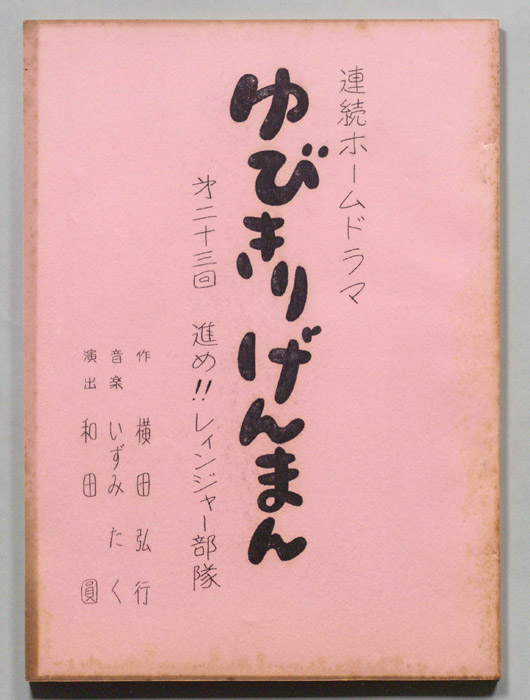 連続ホームドラマ
ゆびきりげんまん
第二十三回 進め!!レィンジャー部隊
作 横田弘行
音楽 いずみたく
演出 和田圓